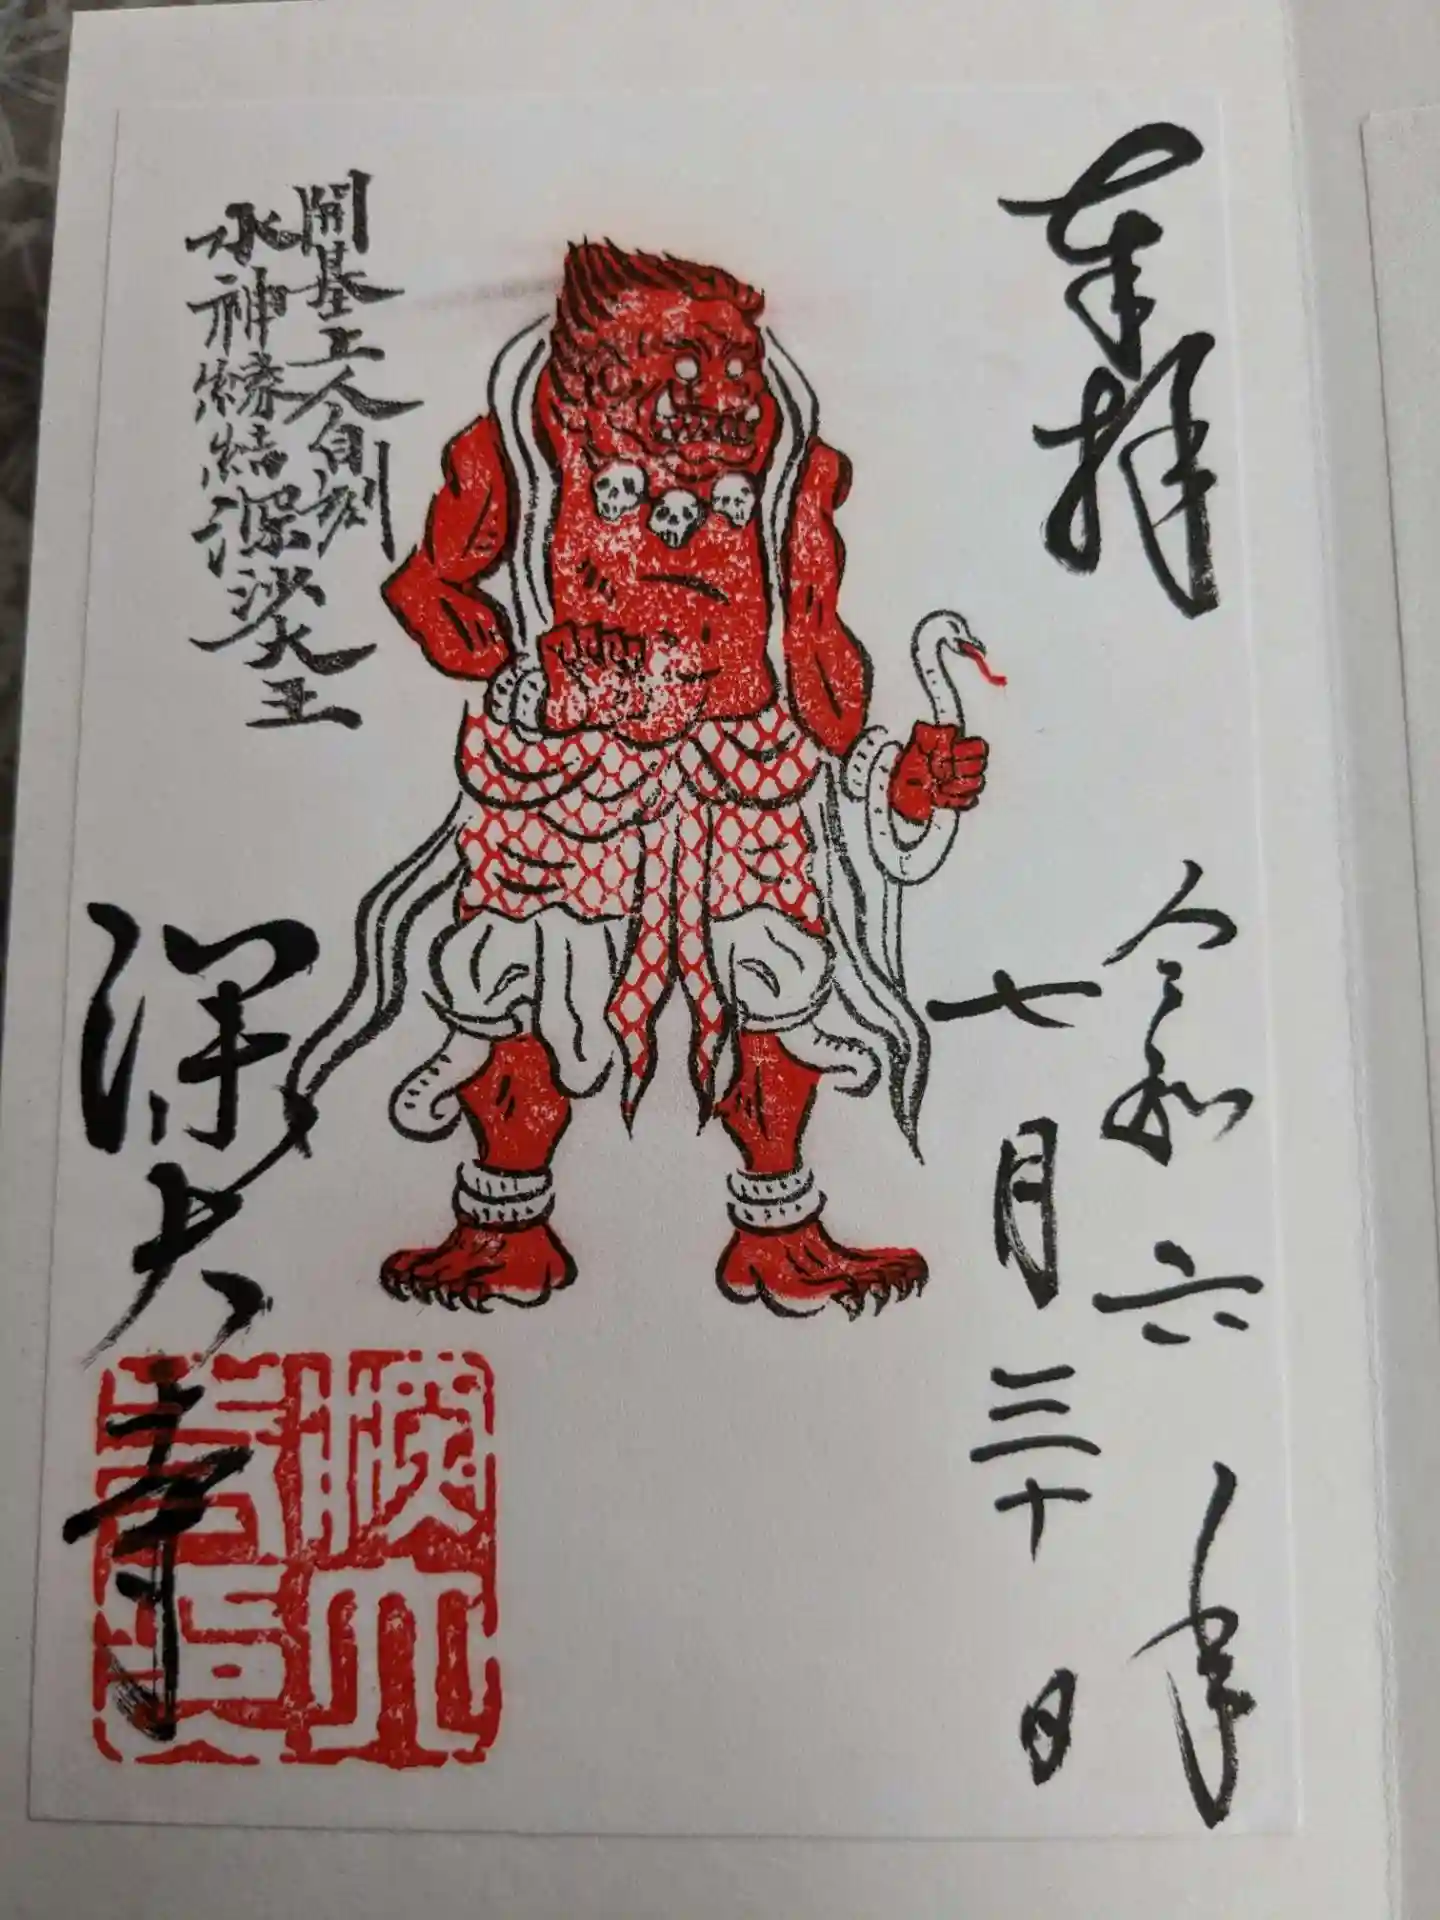 奉拝
令和六年
七月三十日
開基上人自刻
水神縁結深沙大王
深大寺